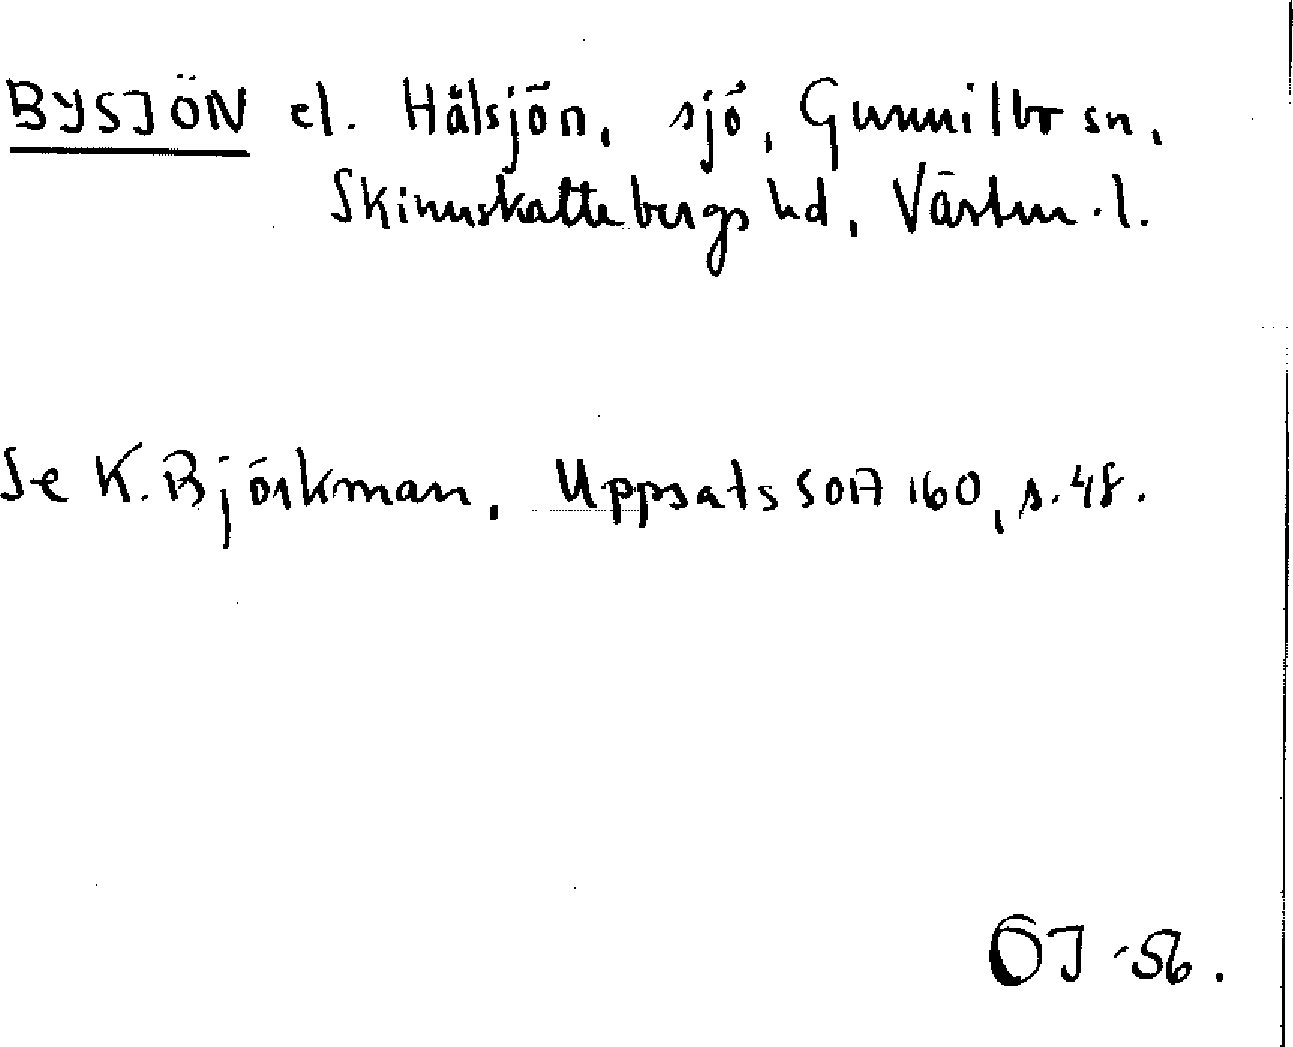 BYSJÖN el. Hålsjön, sjö, Gunnilbo sn,
Skinnskattebergs hd, Västm. l.
Se K. Björkman, Uppsats SOA 160, s. 48.
ÖJ -56.